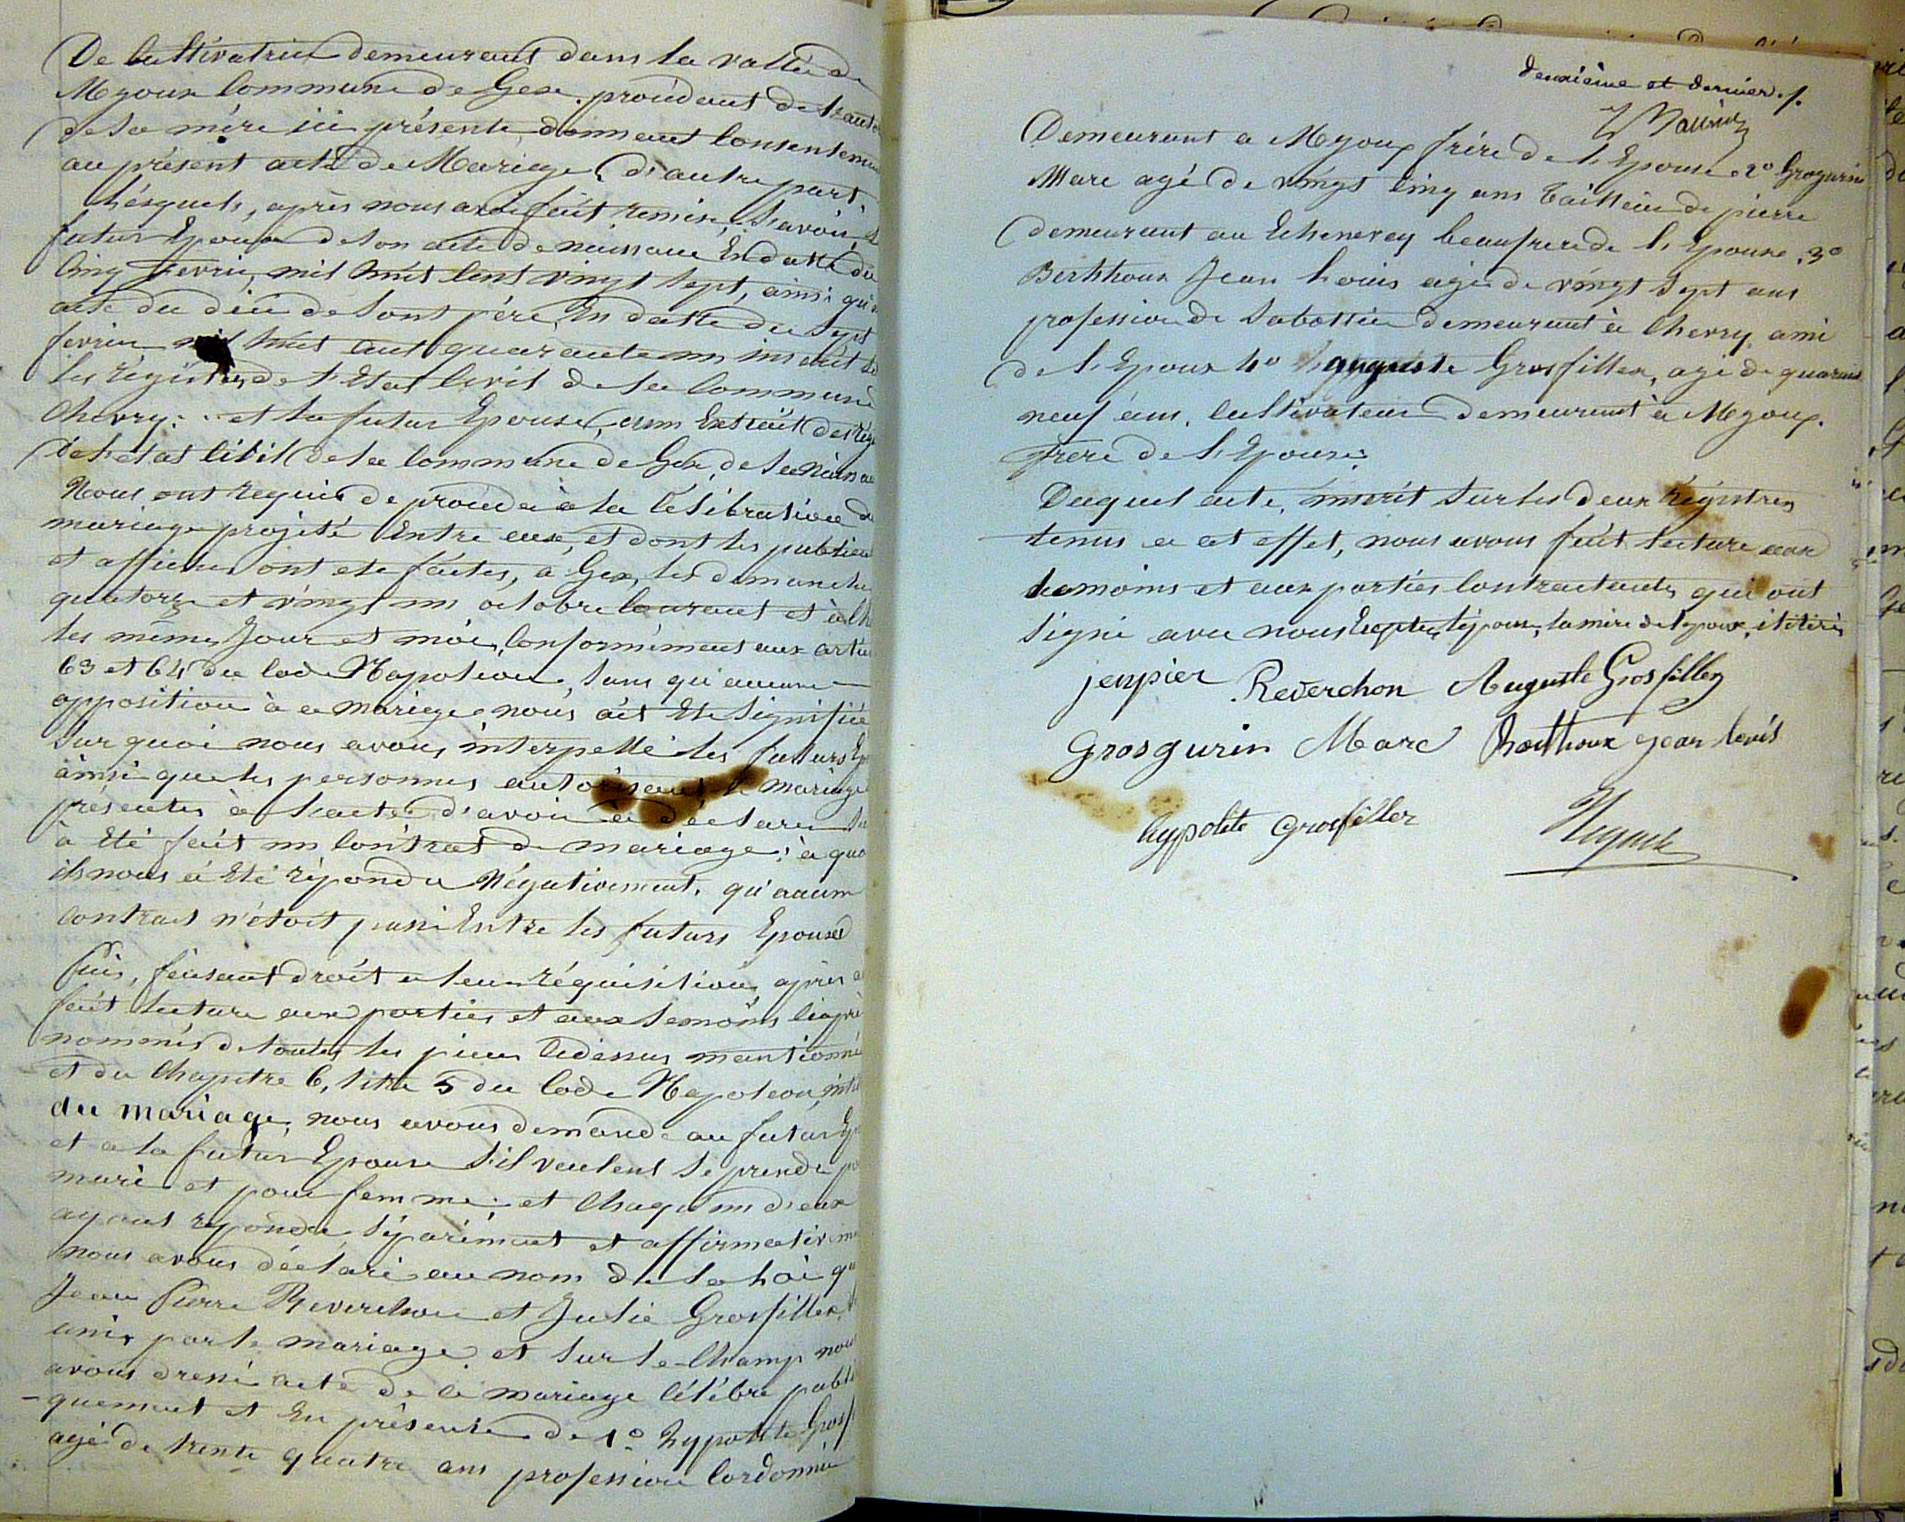 De Cultivatrice demeurant dans la vallée de
Myoux Commune de Gex. procédant de l'auto
de sa mère ici présente, donnant Consenteme
au présent acte de Mariage, d'autre part.
Lésquels, après nous avoir fait remise, savoir, le
futur Epoux de son acte de naissance En datte du
Cinq fevrier, mil huit Cent vingt sept, ainsi que
acte du décé de sont père, En datte du Sept
fevrier mil huit Cent quarante un inscrit sur
les régistres de l'Etat Civil de la Commune
Chevry: et la futur Epouse, un Extrait des rég
De l'état Civil de la Commune de Gex, de sa Naissan
Nous ont requis de procéder à la Célébration du
mariage projeté Entre eux, et dont les publica
et affiches ont été faites, a Gex, les dimanche
quatorze et vingt un octobre Courant et à Ch
les mêmes Jour et mois, Conformément aux artic
63 et 64 du Code Napoléon, sans qu'aucune
opposition à ce mariage nous ait Eté signifiée
sur quoi nous avons interpellé les futurs Ep
ainsi que les personnes autorisant le mariage
présentes à l'acte d'avoir à déclarer s'il
à Eté fait un Contrat de mariage; à quoi
ils nous à Eté répondu Négativement, qu'aucun
Contract n'étoit passé Entre les futurs Epoux
Puis, faisant droit a leur réquisition, après a
fait lecture aux parties et aux temoins Ciaprè
nommés de toutes les pieces Cidéssus mentionné
et du Chapitre 6, titre 5 du Code Napoleon, intit
du mariage, nous avons demandé au futur Ep
et a la futur Epouse s'il veulent se prendre po
mari et pour femme; et Chaqu'un d'eux
ayant répondu séparément et affirmativeme
nous avons déclaré au nom de la Loi que
Jean Pierre Reverchon et Julie Grosfillex,
unis par le mariage. et sur le Champ nous
avons dressé acte de ce mariage Célébré publi
quement et En présence de 1° hypolite Grosf
agé de trente quatre ans profession Cordonnié
deuxième et dernier.
Demeurant a Myoux frère de l'Epouse 2° Grosgurin
Marc agé de vingt Cinq ans tailleur de pierre
demeurant au Echenevex beaufrere de l'Epouse, 3°
Berthoux Jean Louis agé de vingt sept ans
profession de Sabottier demeurant à Chevry, ami
de l'Epoux 4° auguste Grosfillex, agé de quarante
neuf ans, Cultivateur demeurant à Myoux.
frere de l'Epouse;
Duquel acte, inscrit sur les deux régistres
tenus a cet effet, nous avons fait lecture aux
temoins et aux parties Contractantes qui ont
signé avec nous Excepté, l'époux, la mère de l'époux, illitérés
jeupier Reverchon Auguste Grosfillex
Grosgurin Marc Berthoux jean louis
hypolite Grosfillex